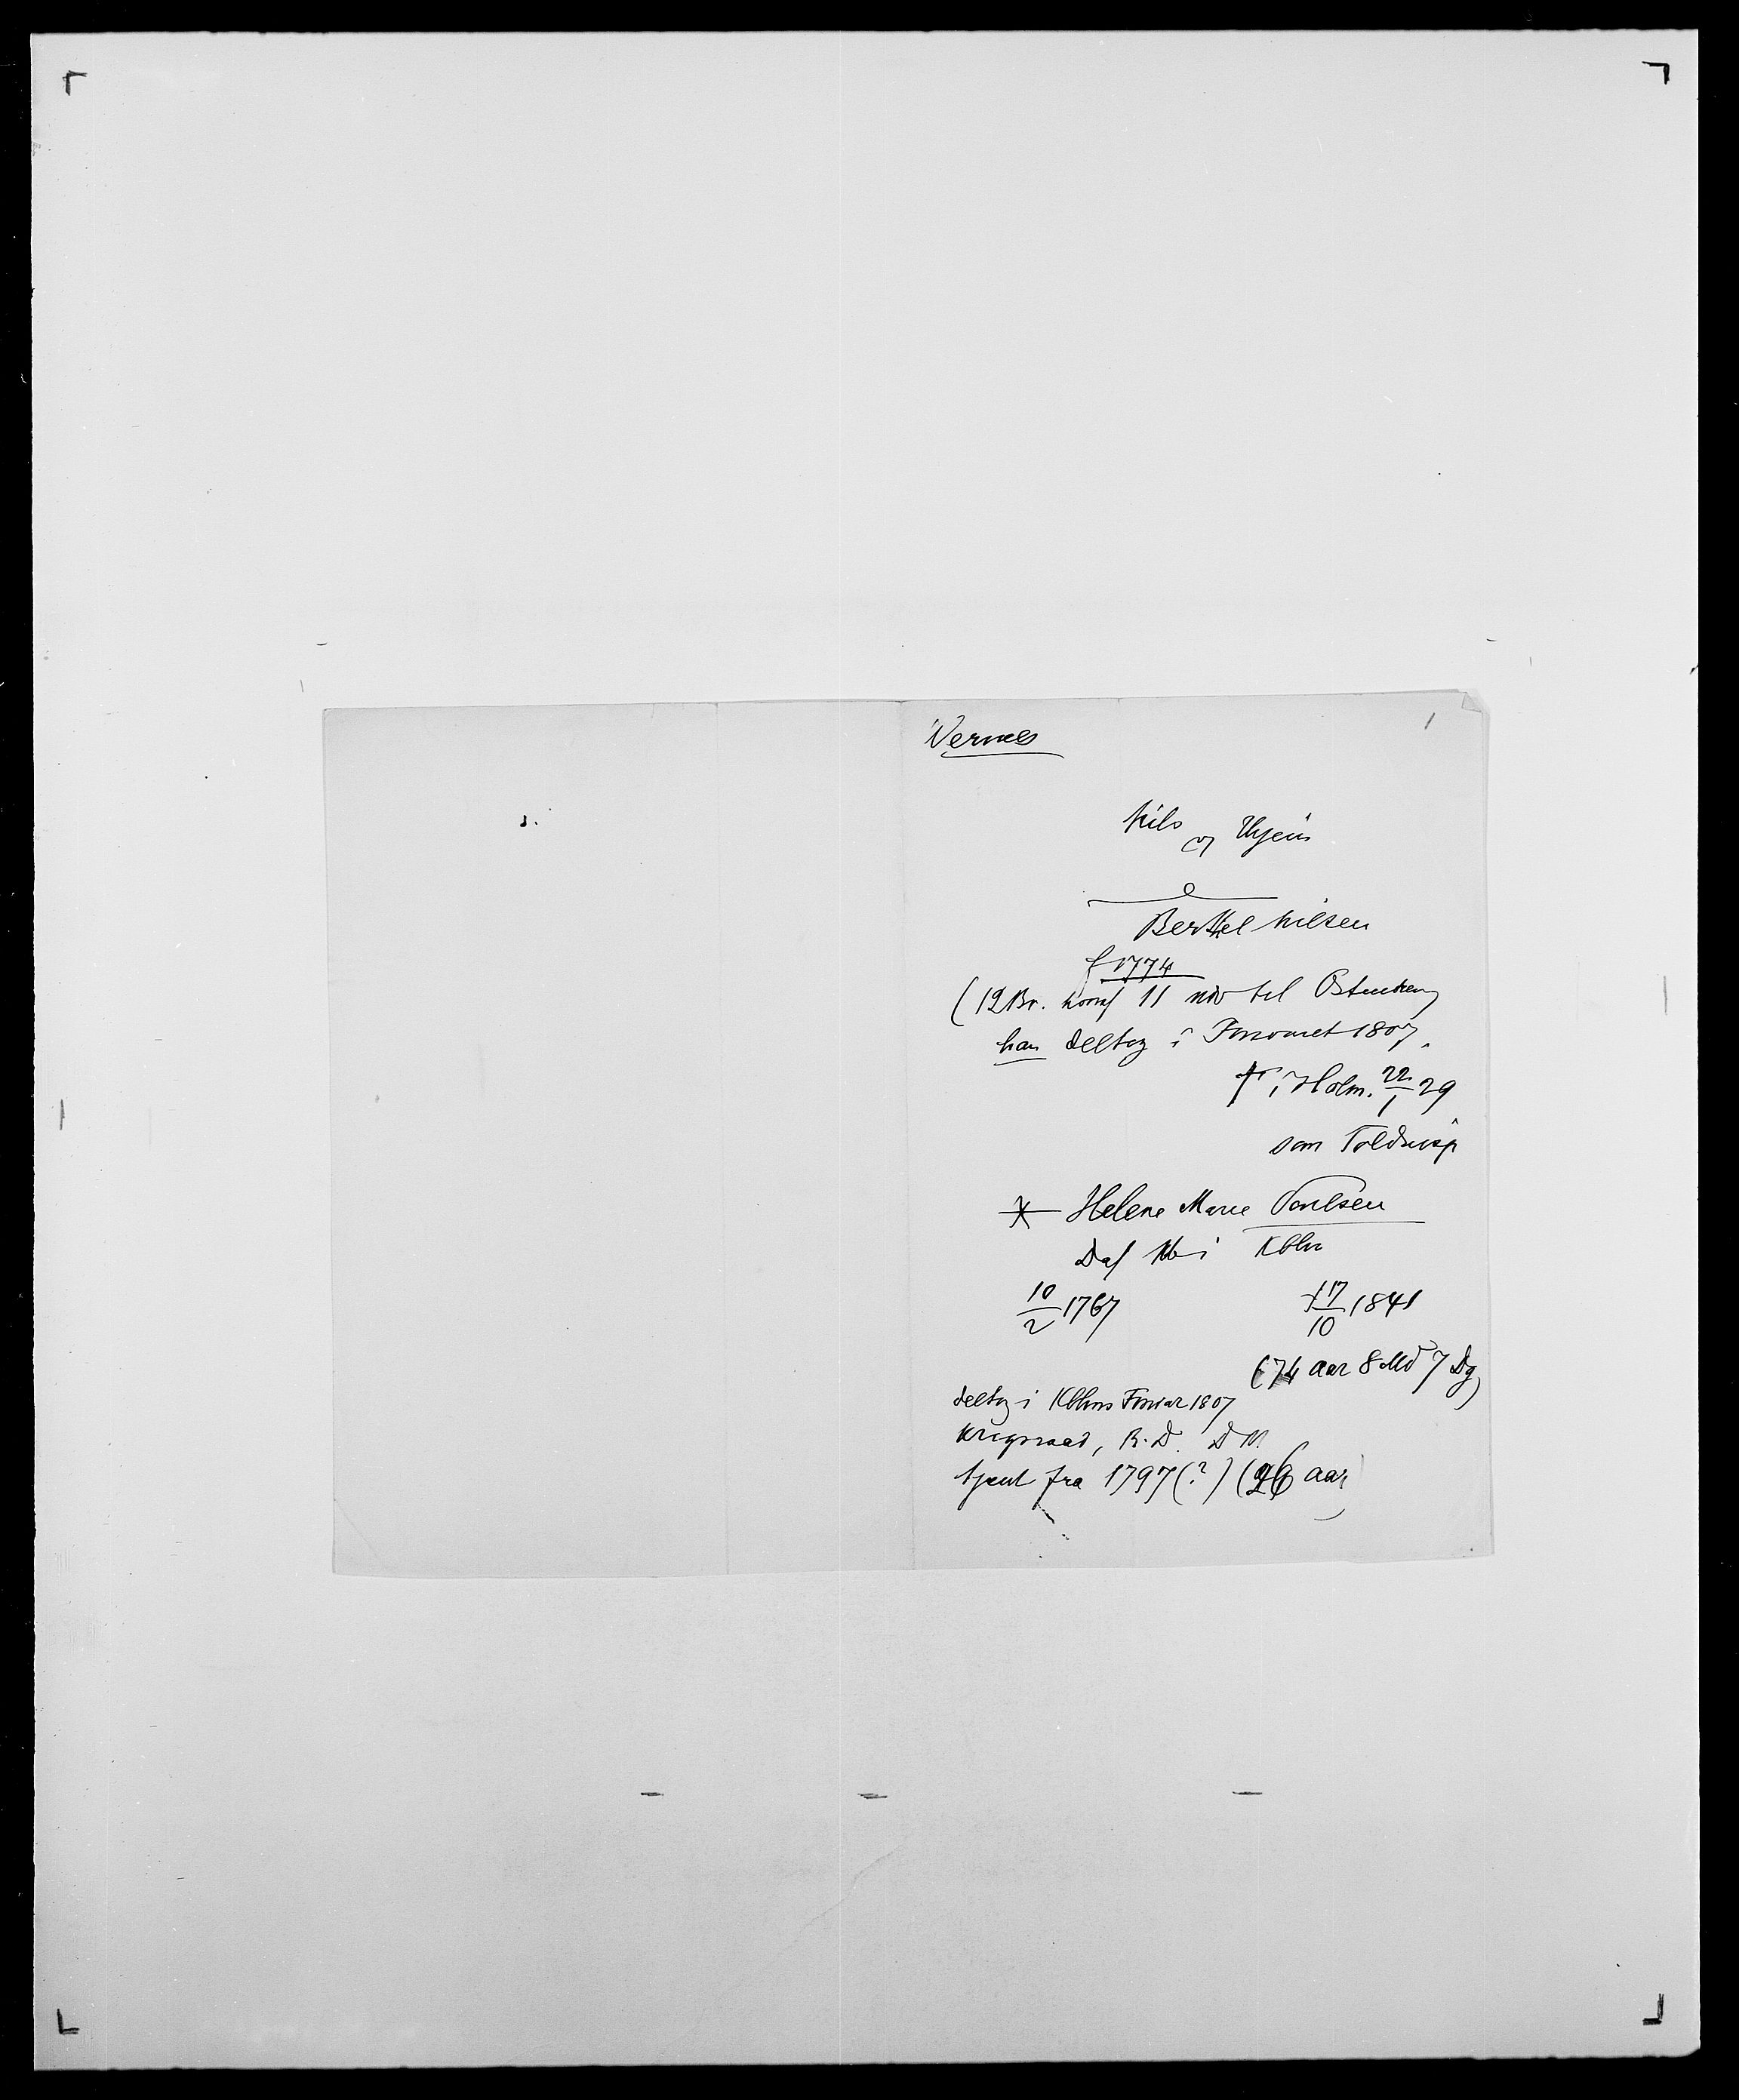 Wernes
1
Nils
og
Berthel Nilsen
f 1774
(12 Br. hvoraf 11 til
han deltog i Forsvaret 1807.
† i Holm. 22/1 29
som Toldinsp
Helene Marie Poulsen
Daf i Kbhn
10/2 1767 † 17/10 1841
(74 aar 8 Md 7 Dg)
deltog i Kbhns Forsvar 1807
Krigsraad, R. D. D M.
tjent fra 1797 (?) (26 aar)